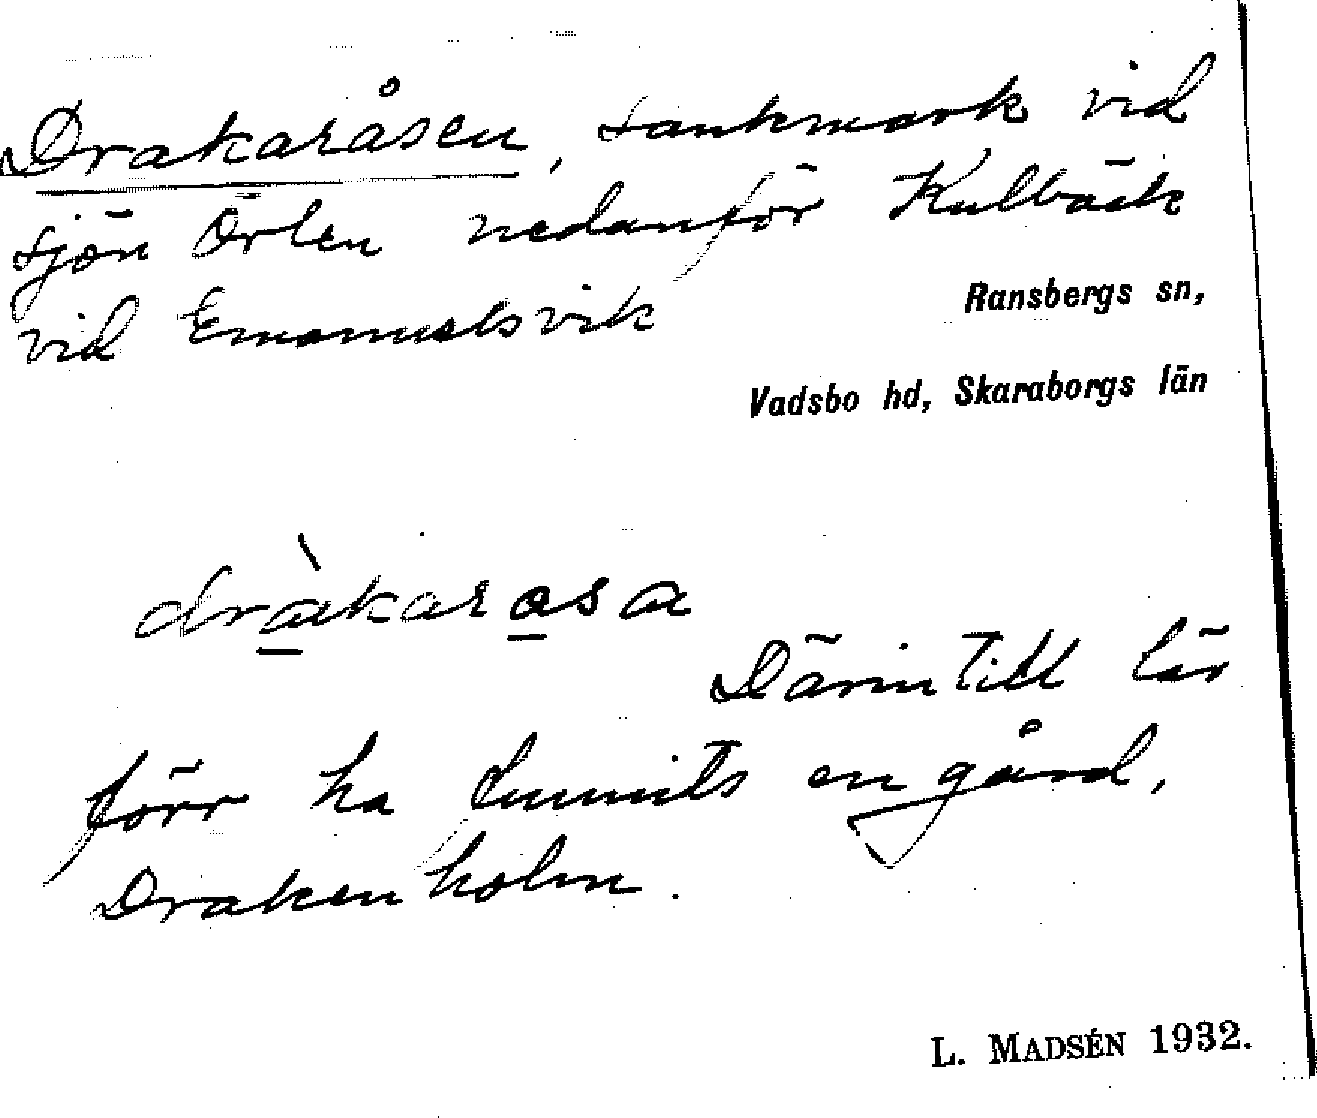 Drakaråsen, sankmark vid
sjön Örlen nedanför Kulbäck
vid Emanuelsvik
Ransbergs sn,
Vadsbo hd, Skaraborgs län
dràkarosa
Därintill lär
förr ha funnits en gård,
Drakenholm.
L. MADSÉN 1932.